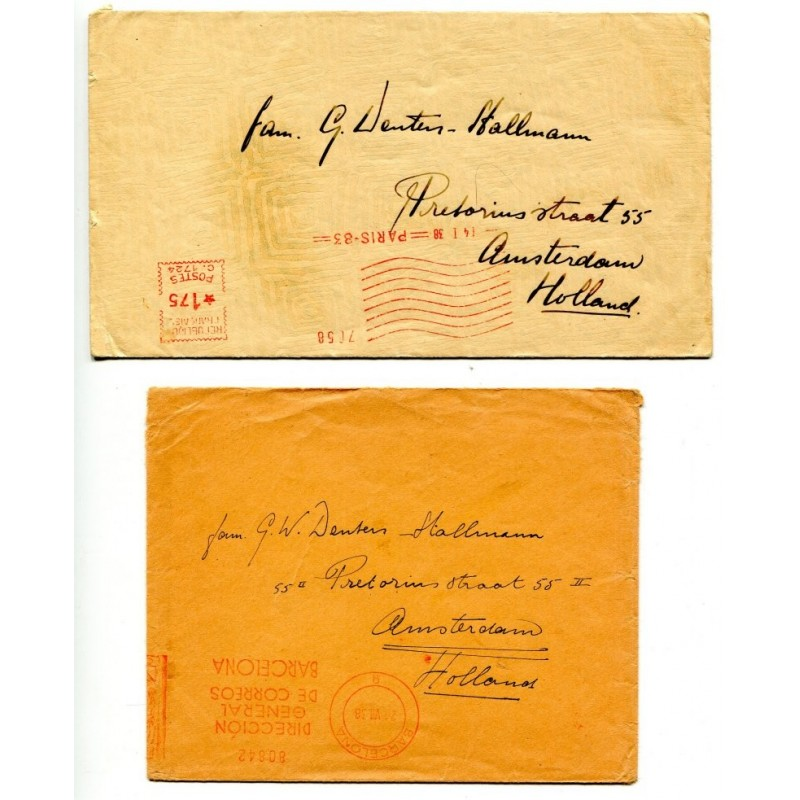 fam. G. Denters-Stallmann
Pretoriusstraat 55
Amsterdam
Holland.
14 I 38 = PARIS-83 =
POSTES
C.1724
★175
REPUBLIQUE
FRANCAISE
7F58
fam. G. W. Denters-Stallmann
55 II Pretoriusstraat 55 II
Amsterdam
Holland
80642
DIRECCIÓN
GENERAL
DE CORREOS
BARCELONA
BARCELONA
VI 38